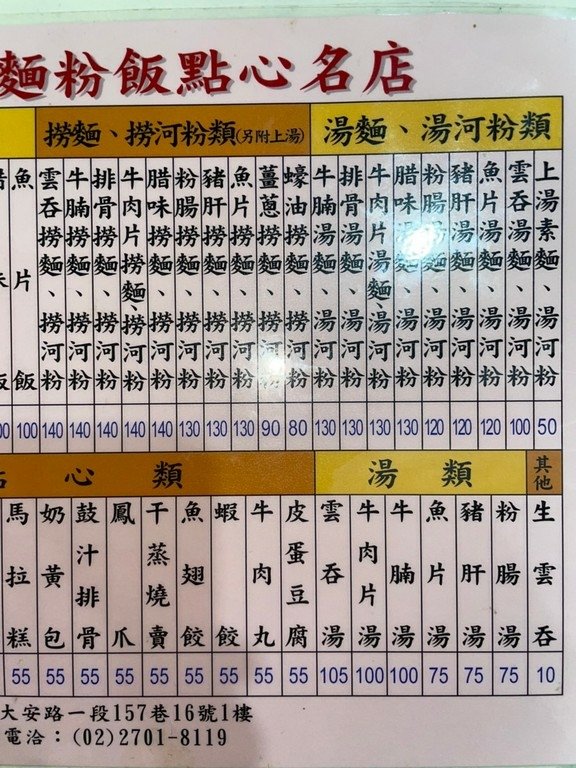 麵粉飯點心名店
湯麵、湯河粉類
上湯素麵、湯河粉 50
雲吞湯麵、湯河粉 100
魚片湯麵、湯河粉 120
豬肝湯麵、湯河粉 120
粉腸湯麵、湯河粉 120
腊味湯麵、湯河粉 130
牛肉片湯麵、湯河粉 130
排骨湯麵、湯河粉 130
牛腩湯麵、湯河粉 130
撈麵、撈河粉類(另附上湯)
蠔油撈麵、撈河粉 80
薑蔥撈麵、撈河粉 90
魚片撈麵、撈河粉 130
豬肝撈麵、撈河粉 130
粉腸撈麵、撈河粉 130
腊味撈麵、撈河粉 140
牛肉片撈麵、撈河粉 140
排骨撈麵、撈河粉 140
牛腩撈麵、撈河粉 140
雲吞撈麵、撈河粉 140
魚片飯 100
其他
生雲吞 10
湯類
粉腸湯 75
豬肝湯 75
魚片湯 75
牛腩湯 100
牛肉片湯 100
雲吞湯 105
心類
皮蛋豆腐 55
牛肉丸 55
蝦餃 55
魚翅餃 55
干蒸燒賣 55
鳳爪 55
鼓汁排骨 55
奶黃包 55
馬拉糕 55
大安路一段157巷16號1樓
電洽：(02)2701-8119